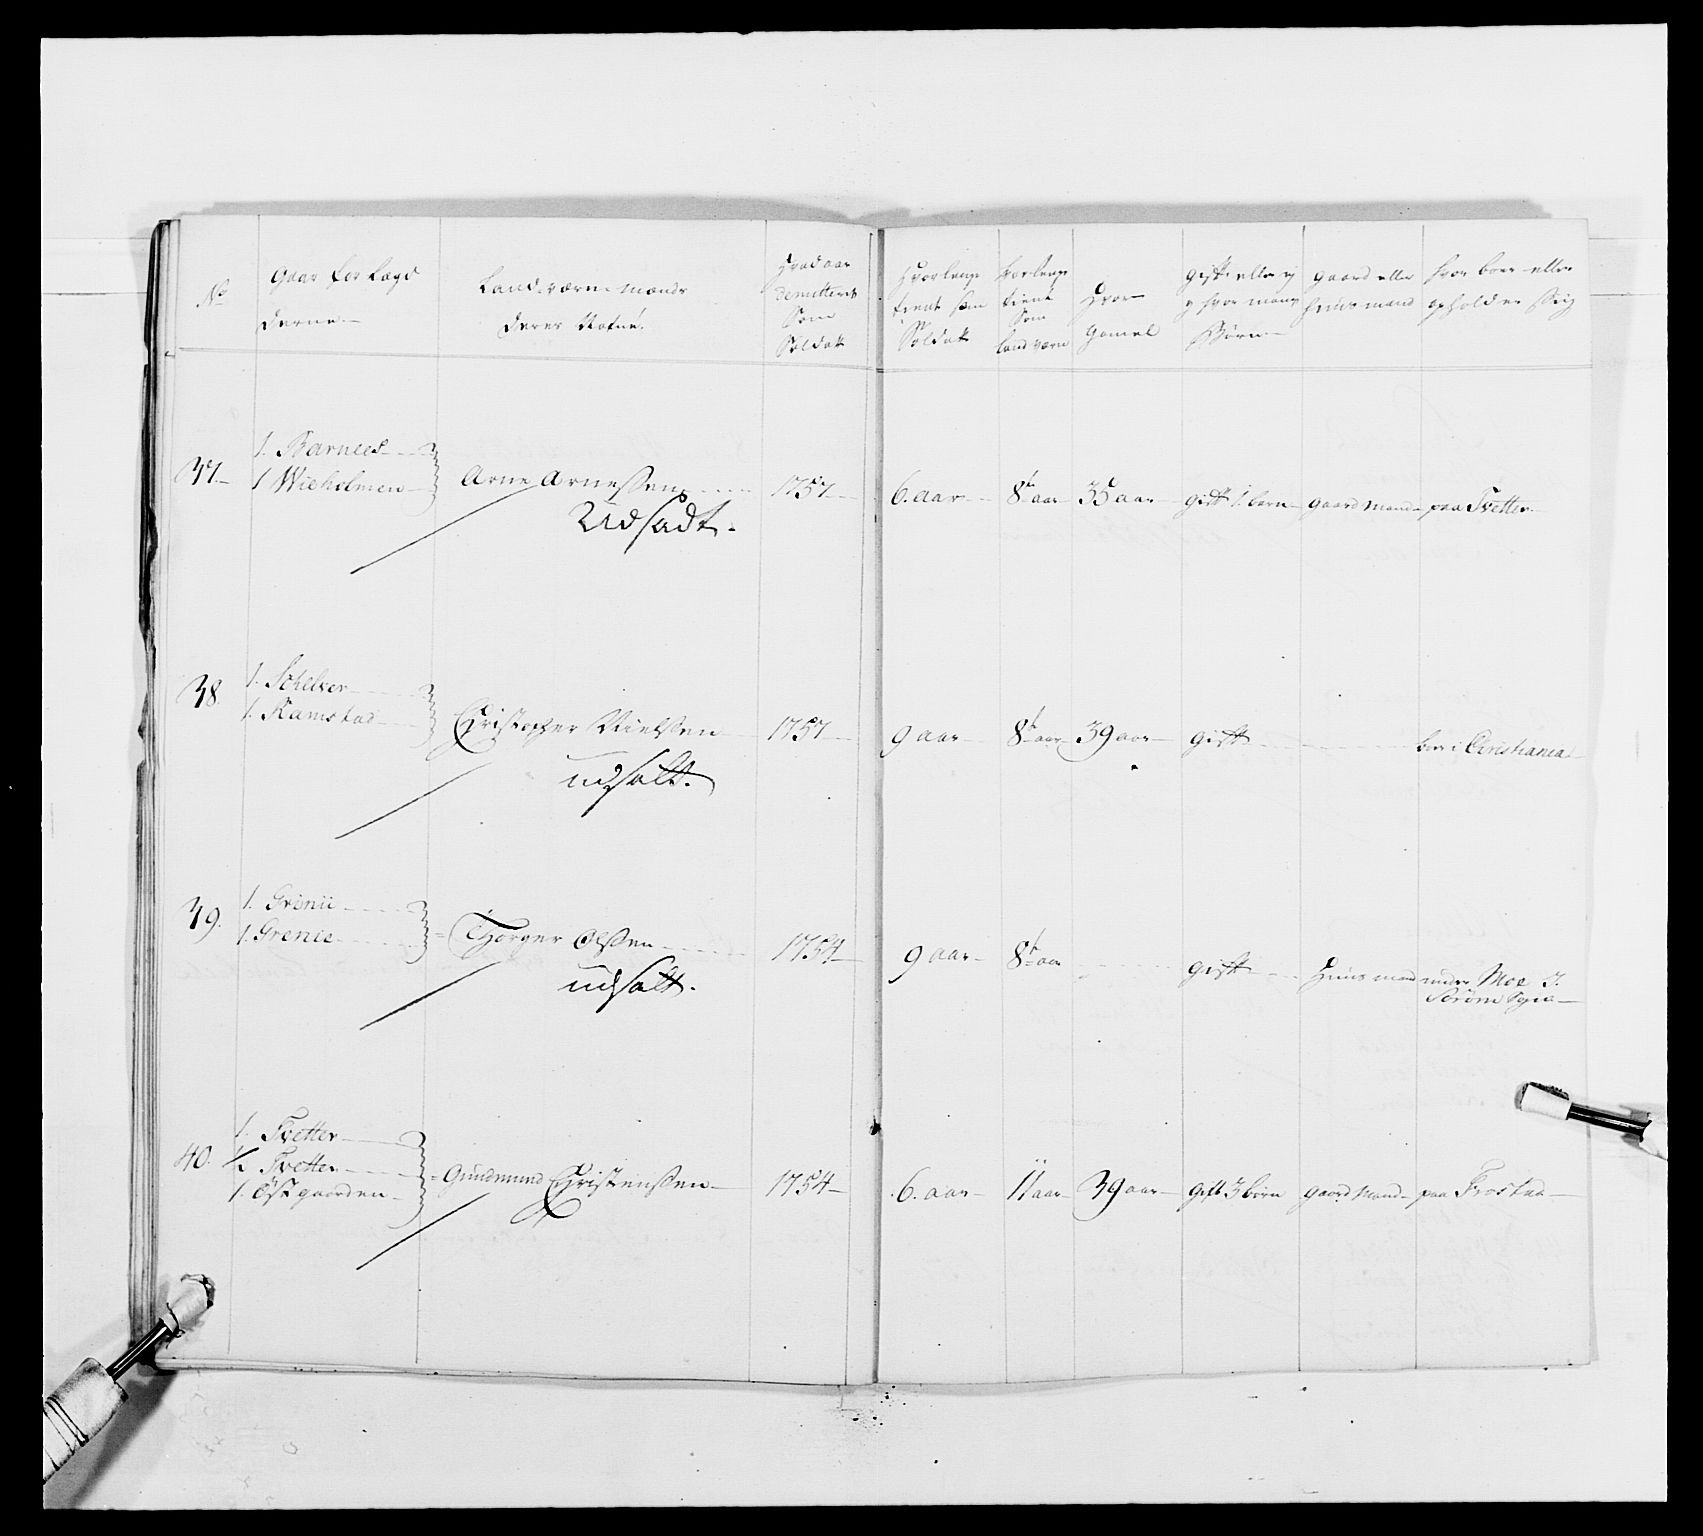 No
Gaar for Lægd
derne
Landværns mænds
deres Nafne.
Hvad aar
demitteret
Som
Soldat
Hvorlenge
tient som
Soldat
hvorlenge
tient
Som
land værn
Hvor
Gamel
gift eller ej
og hvor mange
Børn
gaard eller
huus mand
hvor boer eller
opholder Sig
37. 1. Barnees
1 Wiehelmen Arne Arnesßen 1757 6. aar 8te aar 35 aar gift 1. barn gaard mand paa Tvetter
Udsadt.
38. 1. Schelver
1. Ramstad Christopher Nielsßen 1757 9 aar 8te aar 39 aar gift boer i Christiania
udsatt.
39. 1. Grinii
1. Grenie Thorger Olsßen 1754 9 aar 8te aar gift Huus mand under Moe I.
Sørøm Sogn
udsatt.
40. 1. Tvetter
1/2 Tvetter
1. Østgaarden Gundmund Christensßen 1754 6. aar 11 aar 39 aar gift 3 børn gaard Mand paa Frostaa